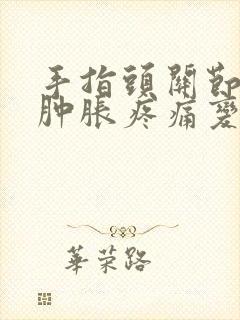 手指頭關節
肿脹疼痛變
華荣路